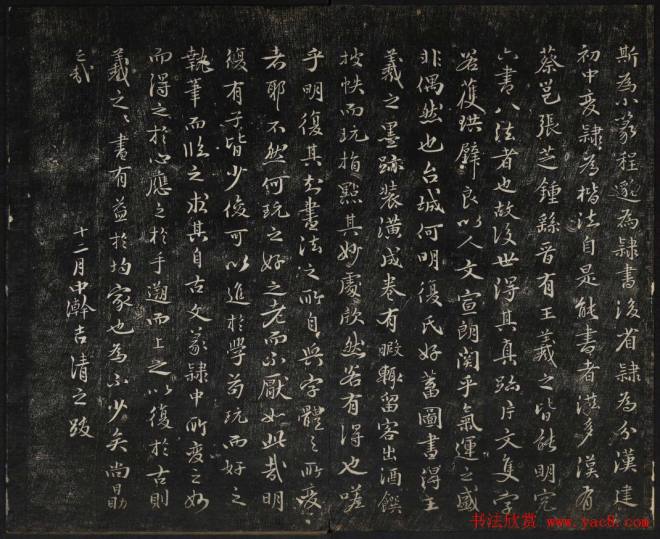 斯為小篆程邈為隸書後省隸為分漢建
初中變隸為楷法自是能書者滋多漢有
蔡邕張芝鍾繇晋有王羲之皆能明究
六書八法者也故後世得其真跡片文隻字
若獲珙璧良以人文宣朗関乎氣運之盛
非偶然也台城何明復氏好蓄圖書得王
羲之墨跡装潢成卷有暇輙留客出酒饌
披帙而玩指點其妙處欣然若有得也嗟
乎明復其知畫法之所自與字體之所变
者耶不然何玩之好之老而不厭如此哉明
復有子皆少俊可以進於學苟玩而好之
執筆而臨之求其自古文篆隸中所变之妙
而得之於心應之於手遡而上之以復於古則
羲之之書有益於均家也為不少矣尚勗
之哉
十二月中澣吉清之跋
书法欣赏 www.yac8.com